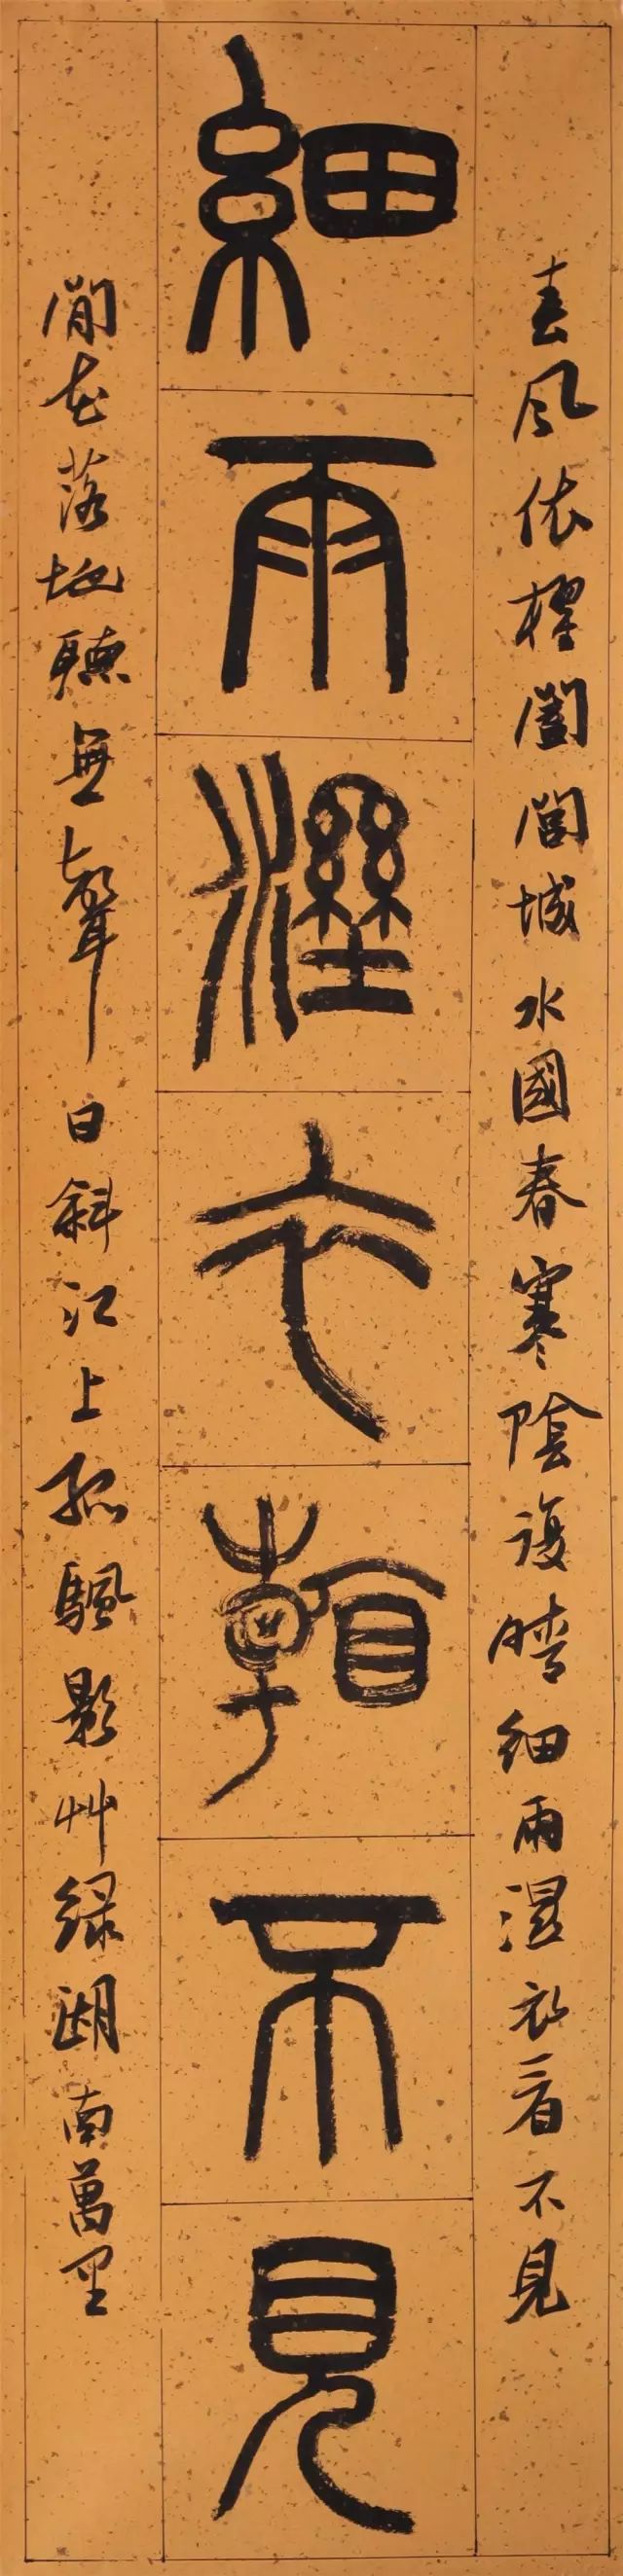 細雨溼衣看不見
春風依櫂闔閭城水國春寒陰復晴細雨湿衣看不見
閒花落地聽無聲日斜江上孤颿影艸綠湖南萬里